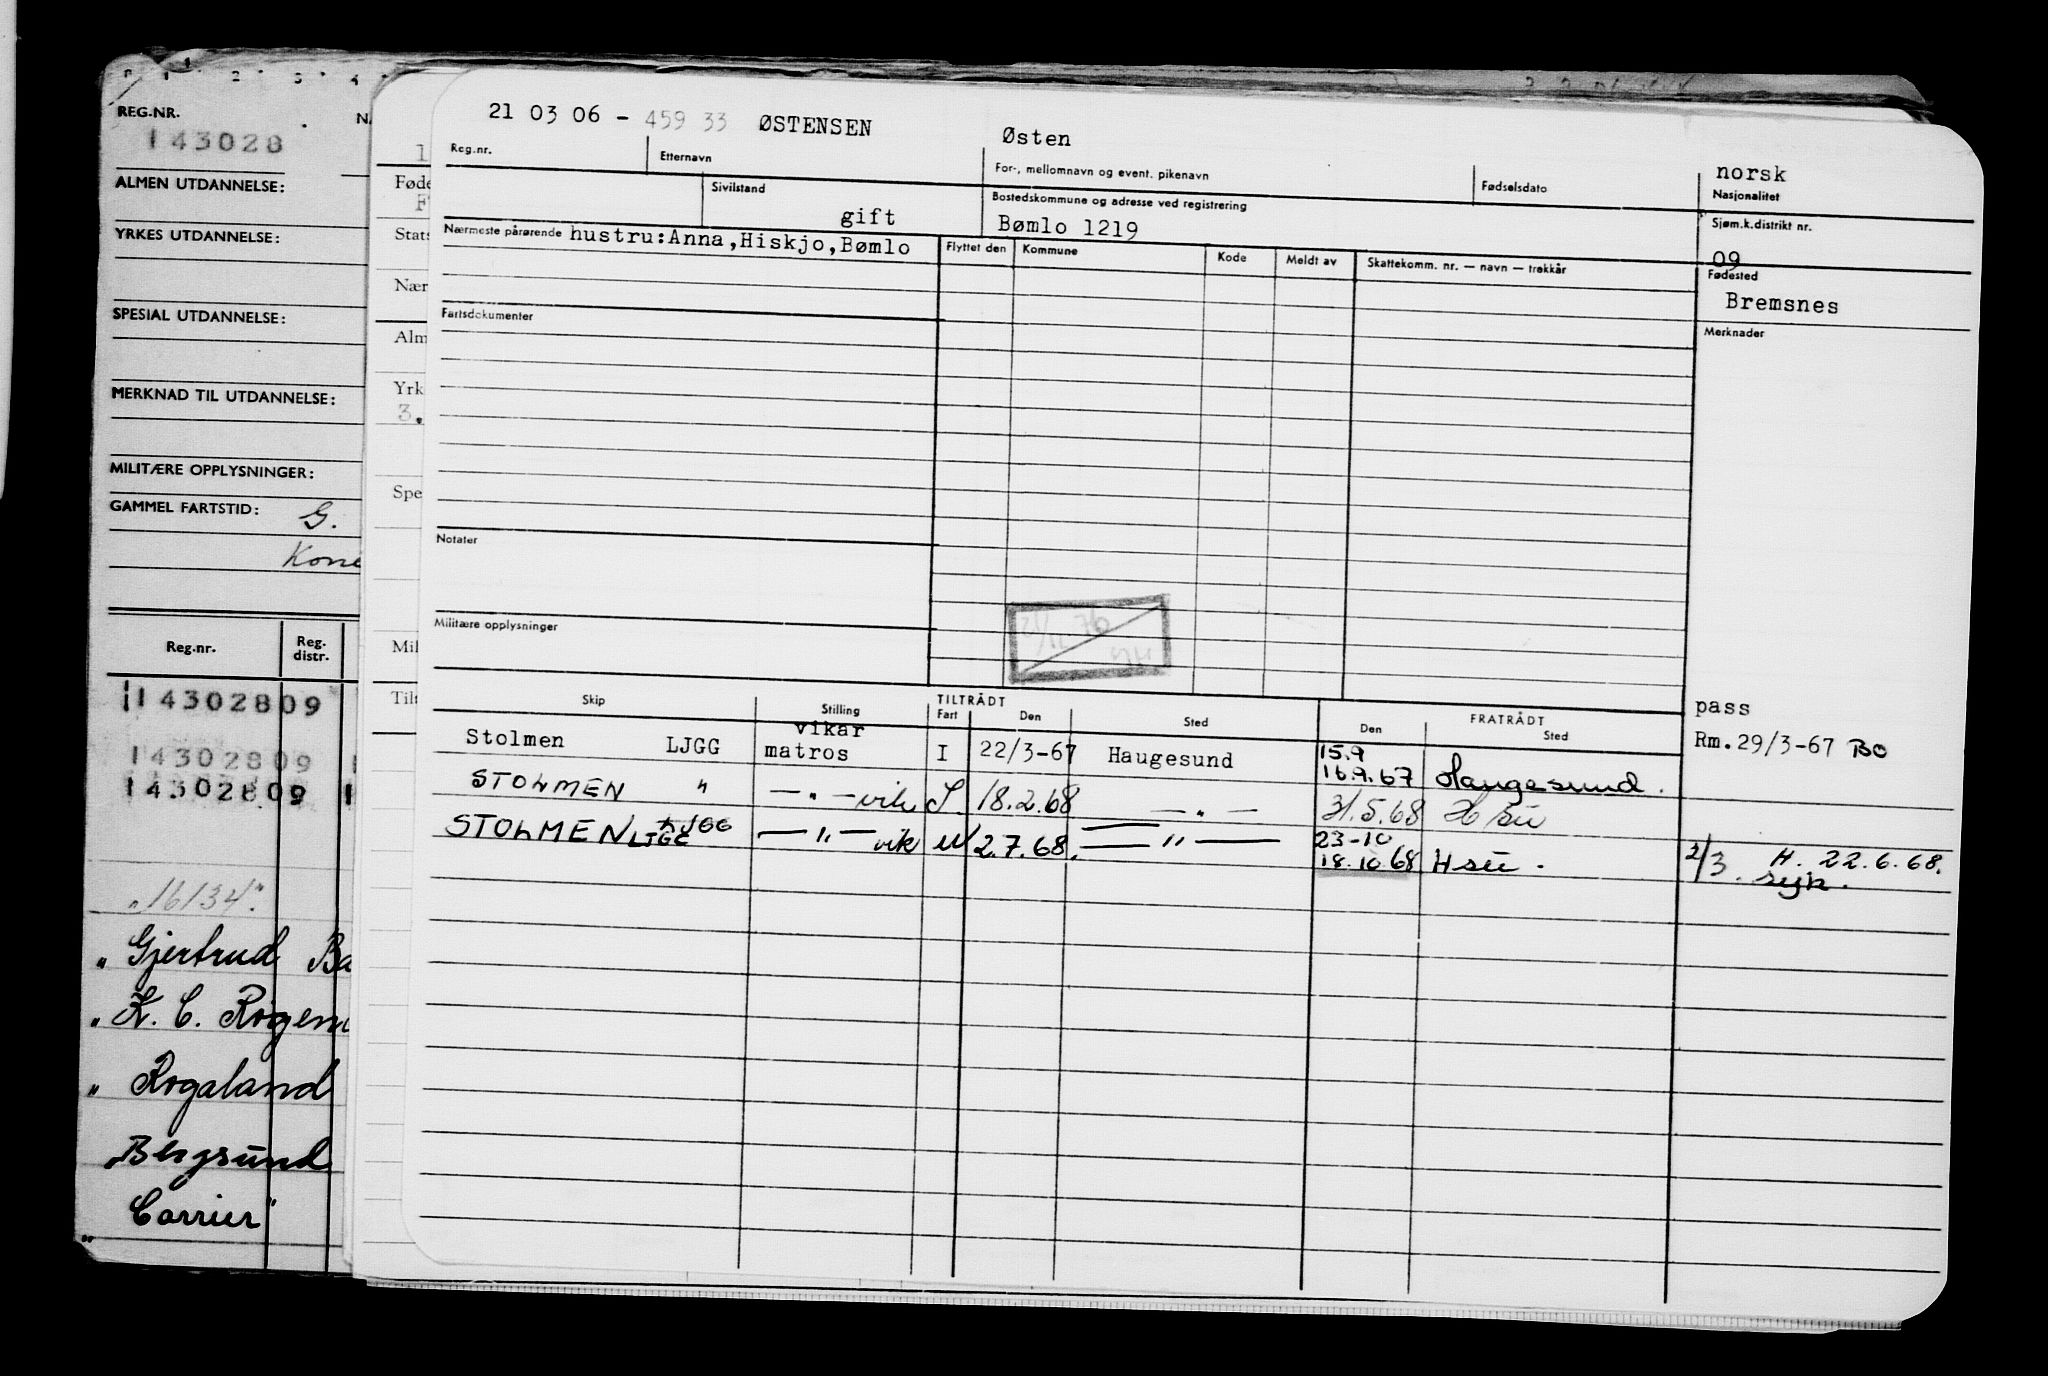 21 03 06 - 459 33 ØSTENSEN Østen norsk
Reg.nr. Etternavn For-, mellomnavn og event. pikenavn Fødselsdato Nasjonalitet
Sivilstand Bostedskommune og adresse ved registrering Sjøm.k.distrikt nr.
gift Bømlo 1219 09
Nærmeste pårørende hustru:Anna,Hiskjo,Bømlo Flyttet den Kommune Kode Meldt av Skattekomm. nr. — navn — trekkår Fødested
Bremsnes
Fartsdokumenter Merknader
Notater
Militære opplysninger
Skip Stilling TILTRÅDT Fart Den Sted FRATRÅDT Den Sted pass
Stolmen LJGG vikar matros I 22/3-67 Haugesund 15.9 16.9.67 Haugesund. Rm.29/3-67 BO
STOLMEN " — " — vik 18.2.68 — " — 31.5.68 Hsu
STOLMEN LJGG — " — vik 2.7.68. — " — 23-10 18.10.68 Hsu. 2/3. H. 22.6.68. syk.
REG.NR.
143028
ALMEN UTDANNELSE:
YRKES UTDANNELSE:
SPESIAL UTDANNELSE:
MERKNAD TIL UTDANNELSE:
MILITÆRE OPPLYSNINGER:
GAMMEL FARTSTID: G.
Reg.nr. Reg. distr.
143028 09
143028 09
143028 09
"16134"
" Gjertrud Ba
" Rogaland
"Bergsund
Carrier"
Føde
Stats
Nær
Alm
Yrk
3.
Spe
Mil
Tilt